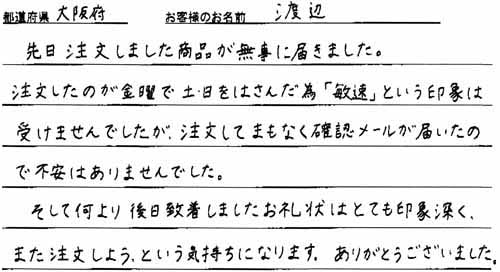 都道府県 大阪府 お客様のお名前 渡辺
先日注文しました商品が無事に届きました。
注文したのが金曜で土・日をはさんだ為「敏速」という印象は
受けませんでしたが、注文してまもなく確認メールが届いたの
で不安はありませんでした。
そして何より後日致着しましたお礼状はとても印象深く、
また注文しよう、という気持ちになります。ありがとうございました。